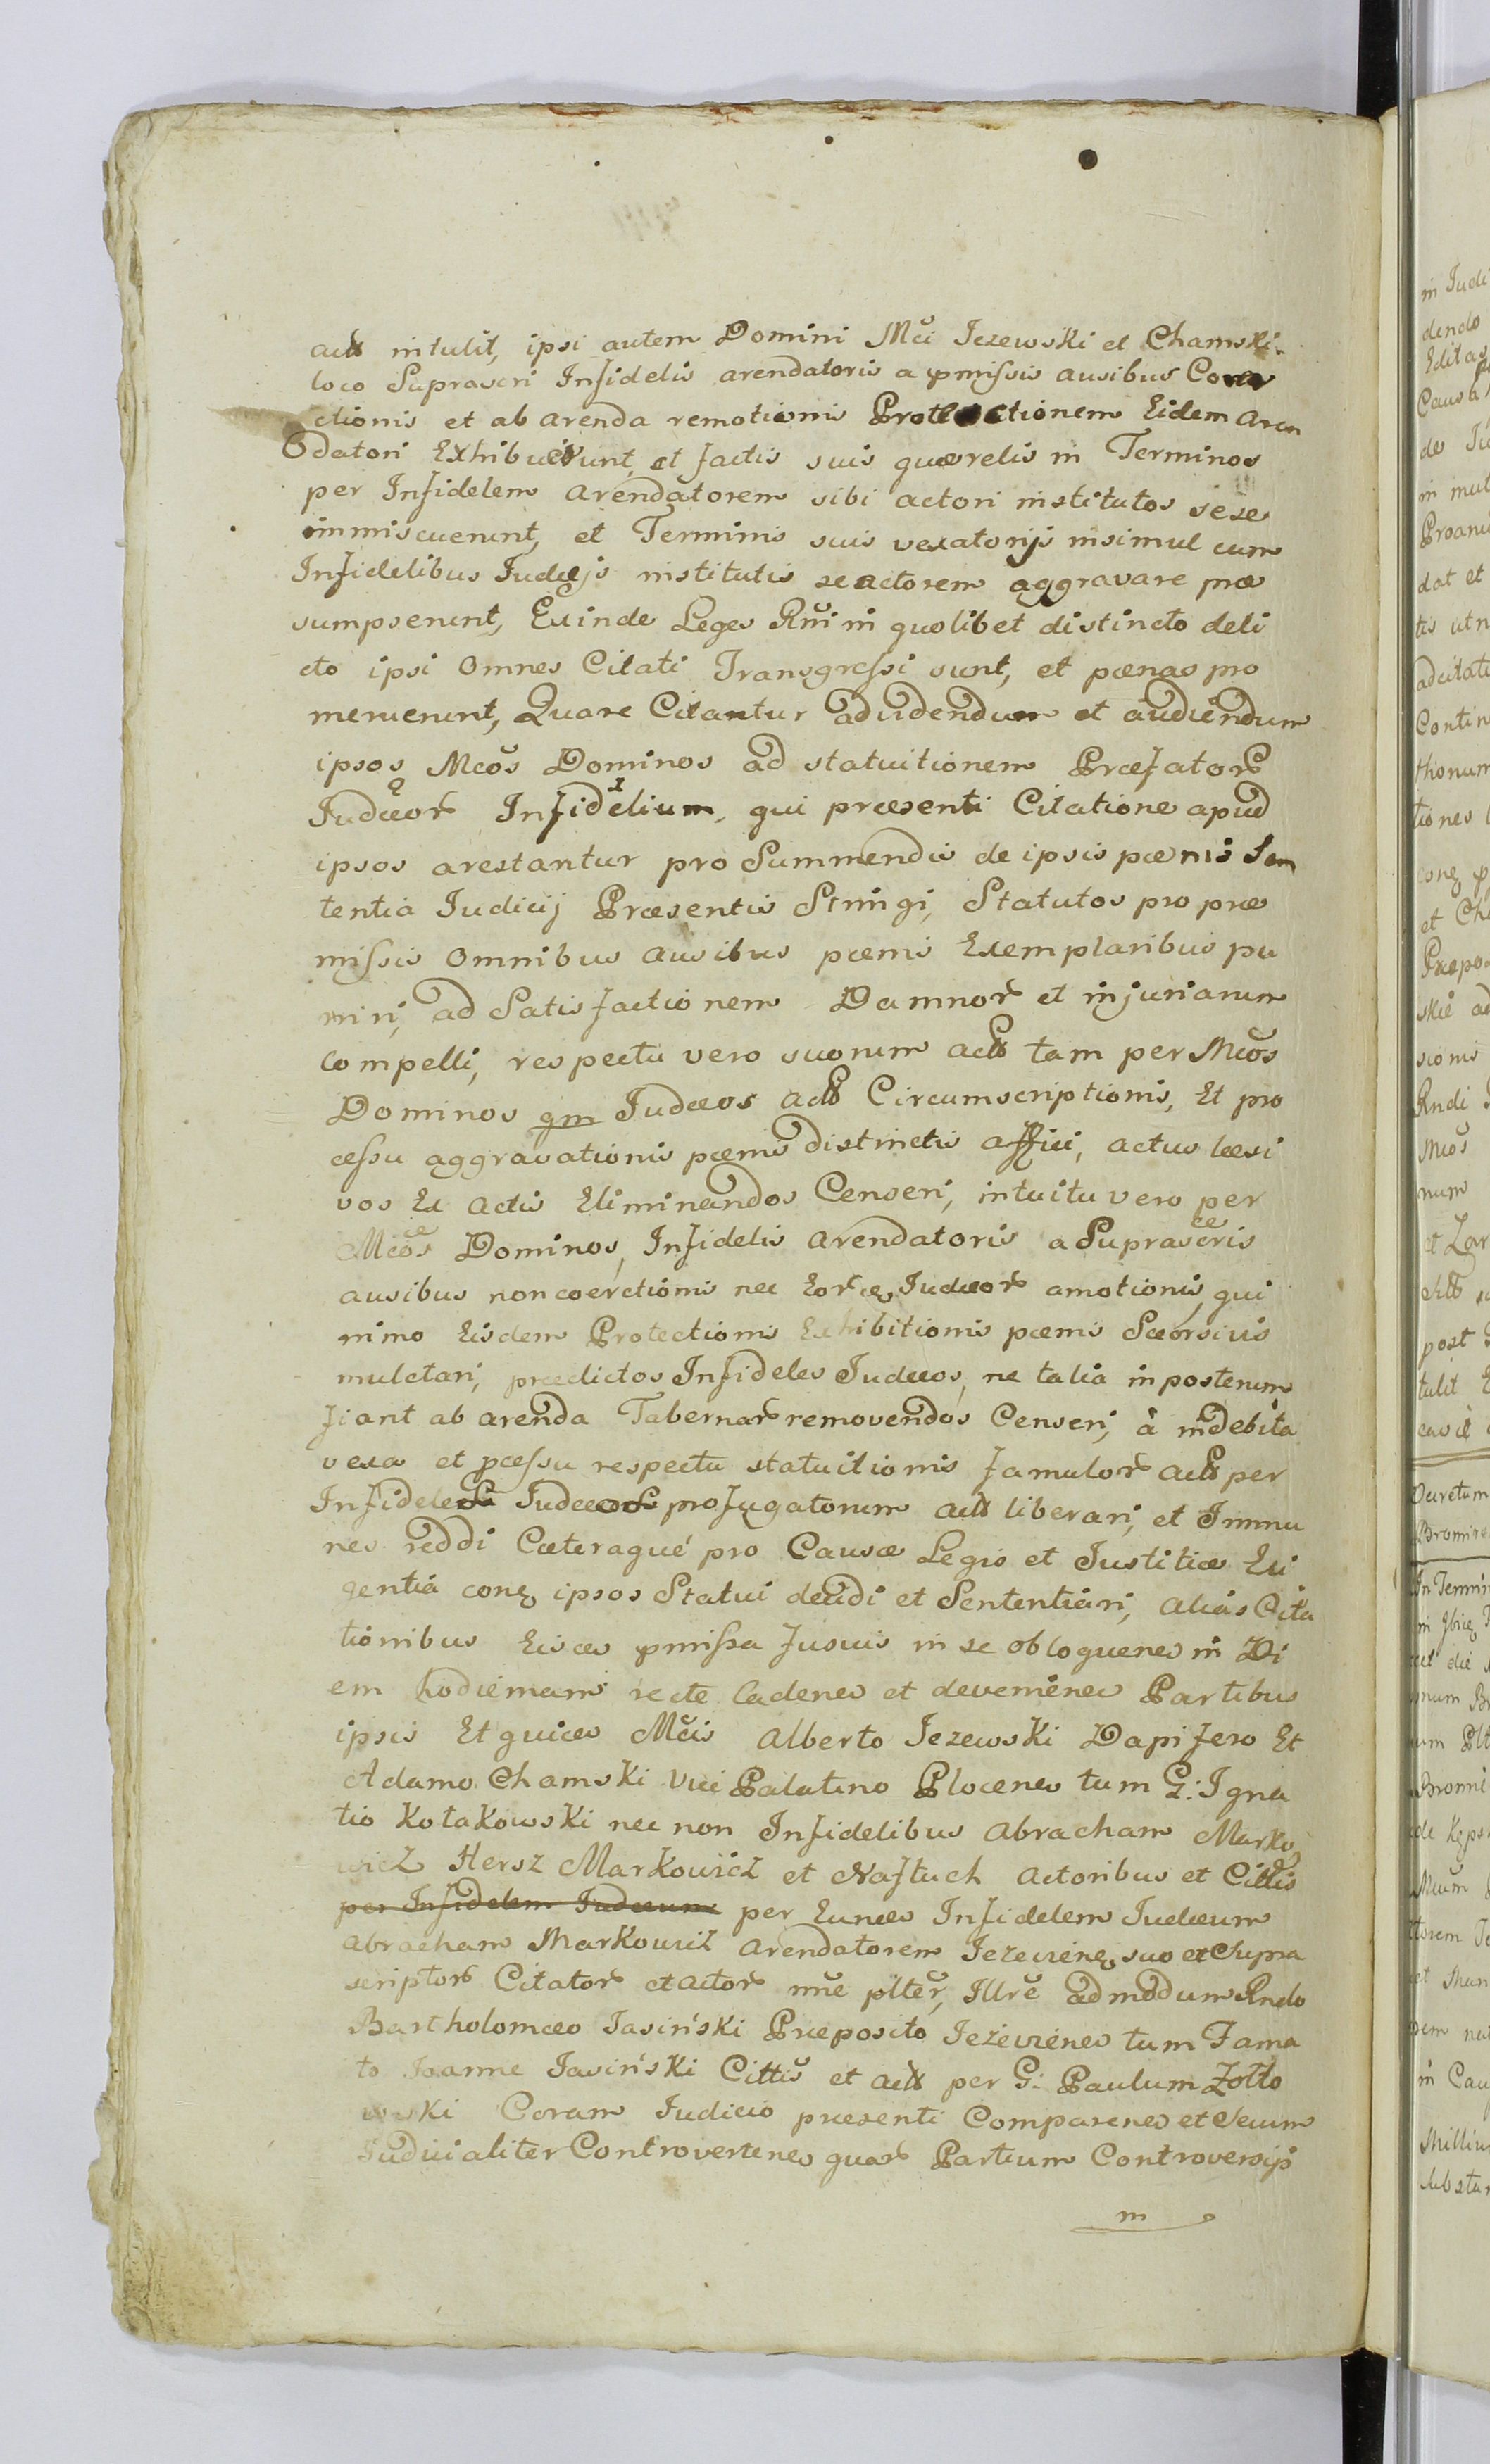 actt intulit, ipsi autem Domini Mci Jezewski et Chamski
loco Suprascri Infidelis arendatoris a pmissis ausibus Coer
ctionis et ab arenda remotionis Protectionem Eidem aren
datori Exhibuerunt, et factis suis quaerelis in Terminos
per Infidelem arendatorem sibi actori institutos sese
immiscuerunt, et Terminis suis vexatorijs insimul cum
Infidelibus Judaejs institutis se actorem aggravare prae
sumpserunt, Exinde Leges Rni in quolibet distincto deli
cto ipsi Omnes Citati Transgressi sunt, et paenas pro
meruerunt, Quare Citantur ad videndum et audiendum
ipsos Mcos Dominos ad statuitionem Praefator
Judaeor Infidelium, qui praesenti Citatione apud
ipsos arestantur pro Summendis de ipsis paenis Sen
tentia Judicij Praesentis Stringi, Statutos pro prae
missis Omnibus ausibus paenis Exemplaribus pu
niri, ad Satisfactionem Damnor et injuriarum
Compelli, respectu vero suorum actt tam per Mcos
Dominos qm Judaeos actt Circumscriptionis, Et pro
cessu aggravationis paenis distinctis affici, actus laesi
vos Ex actis Eliminandos Censeri, intuitu vero per
Mcos Dominos, Infidelis arendatoris a Suprascris
ausibus non coerctionis nec Eor Judaeor amotionis, qui
nimo Eisdem Protectionis Exhibitionis paenis Saeorsivis
mulctari, praedictos Infideles Judaeos, ne talia in posterum
fiant ab arenda Tabernar removendos Censeri, à indebita
vexa et pcessu respectu statuitionis famulor actt per
Infideles Judaeos profugatorum actt liberari, et Immu
nes reddi Caeteraque pro Causae Legis et Justitiae Exi
gentia conq ipsos Statui decidi et Sententiari, alias Cita
tionibus Eisces pmissa fusius in se obloquenes in Di
em hodiernam recte Cadenes et devenienes Partibus
ipsis Et quices Mcis Alberto Jezewski Dapifero Et
Adamo Chamski Vice Palatino Plocenes tum G: Igna
tio Kotakowski nec non Infidelibus Abracham Marko
wicz Hersz Markowicz et Naftuch Actoribus et Cittis
per Infidelem Judaeum per Eunces Infidelem Judaeum
Abracham Markowicz Arendatorem Jezevienes, suo et Supra
scriptor Citator et actor nne plter, Illre admodum Rndo
Bartholomaeo Jasiński Praeposito Jeżevienes tum Fama
to Joanne Jasiński Cittis et actt per G: Paulum Zotto
wski Coram Judicio praesenti Comparenes et Secum
Judicialiter Controvertenes quar Partium Controversijs
in